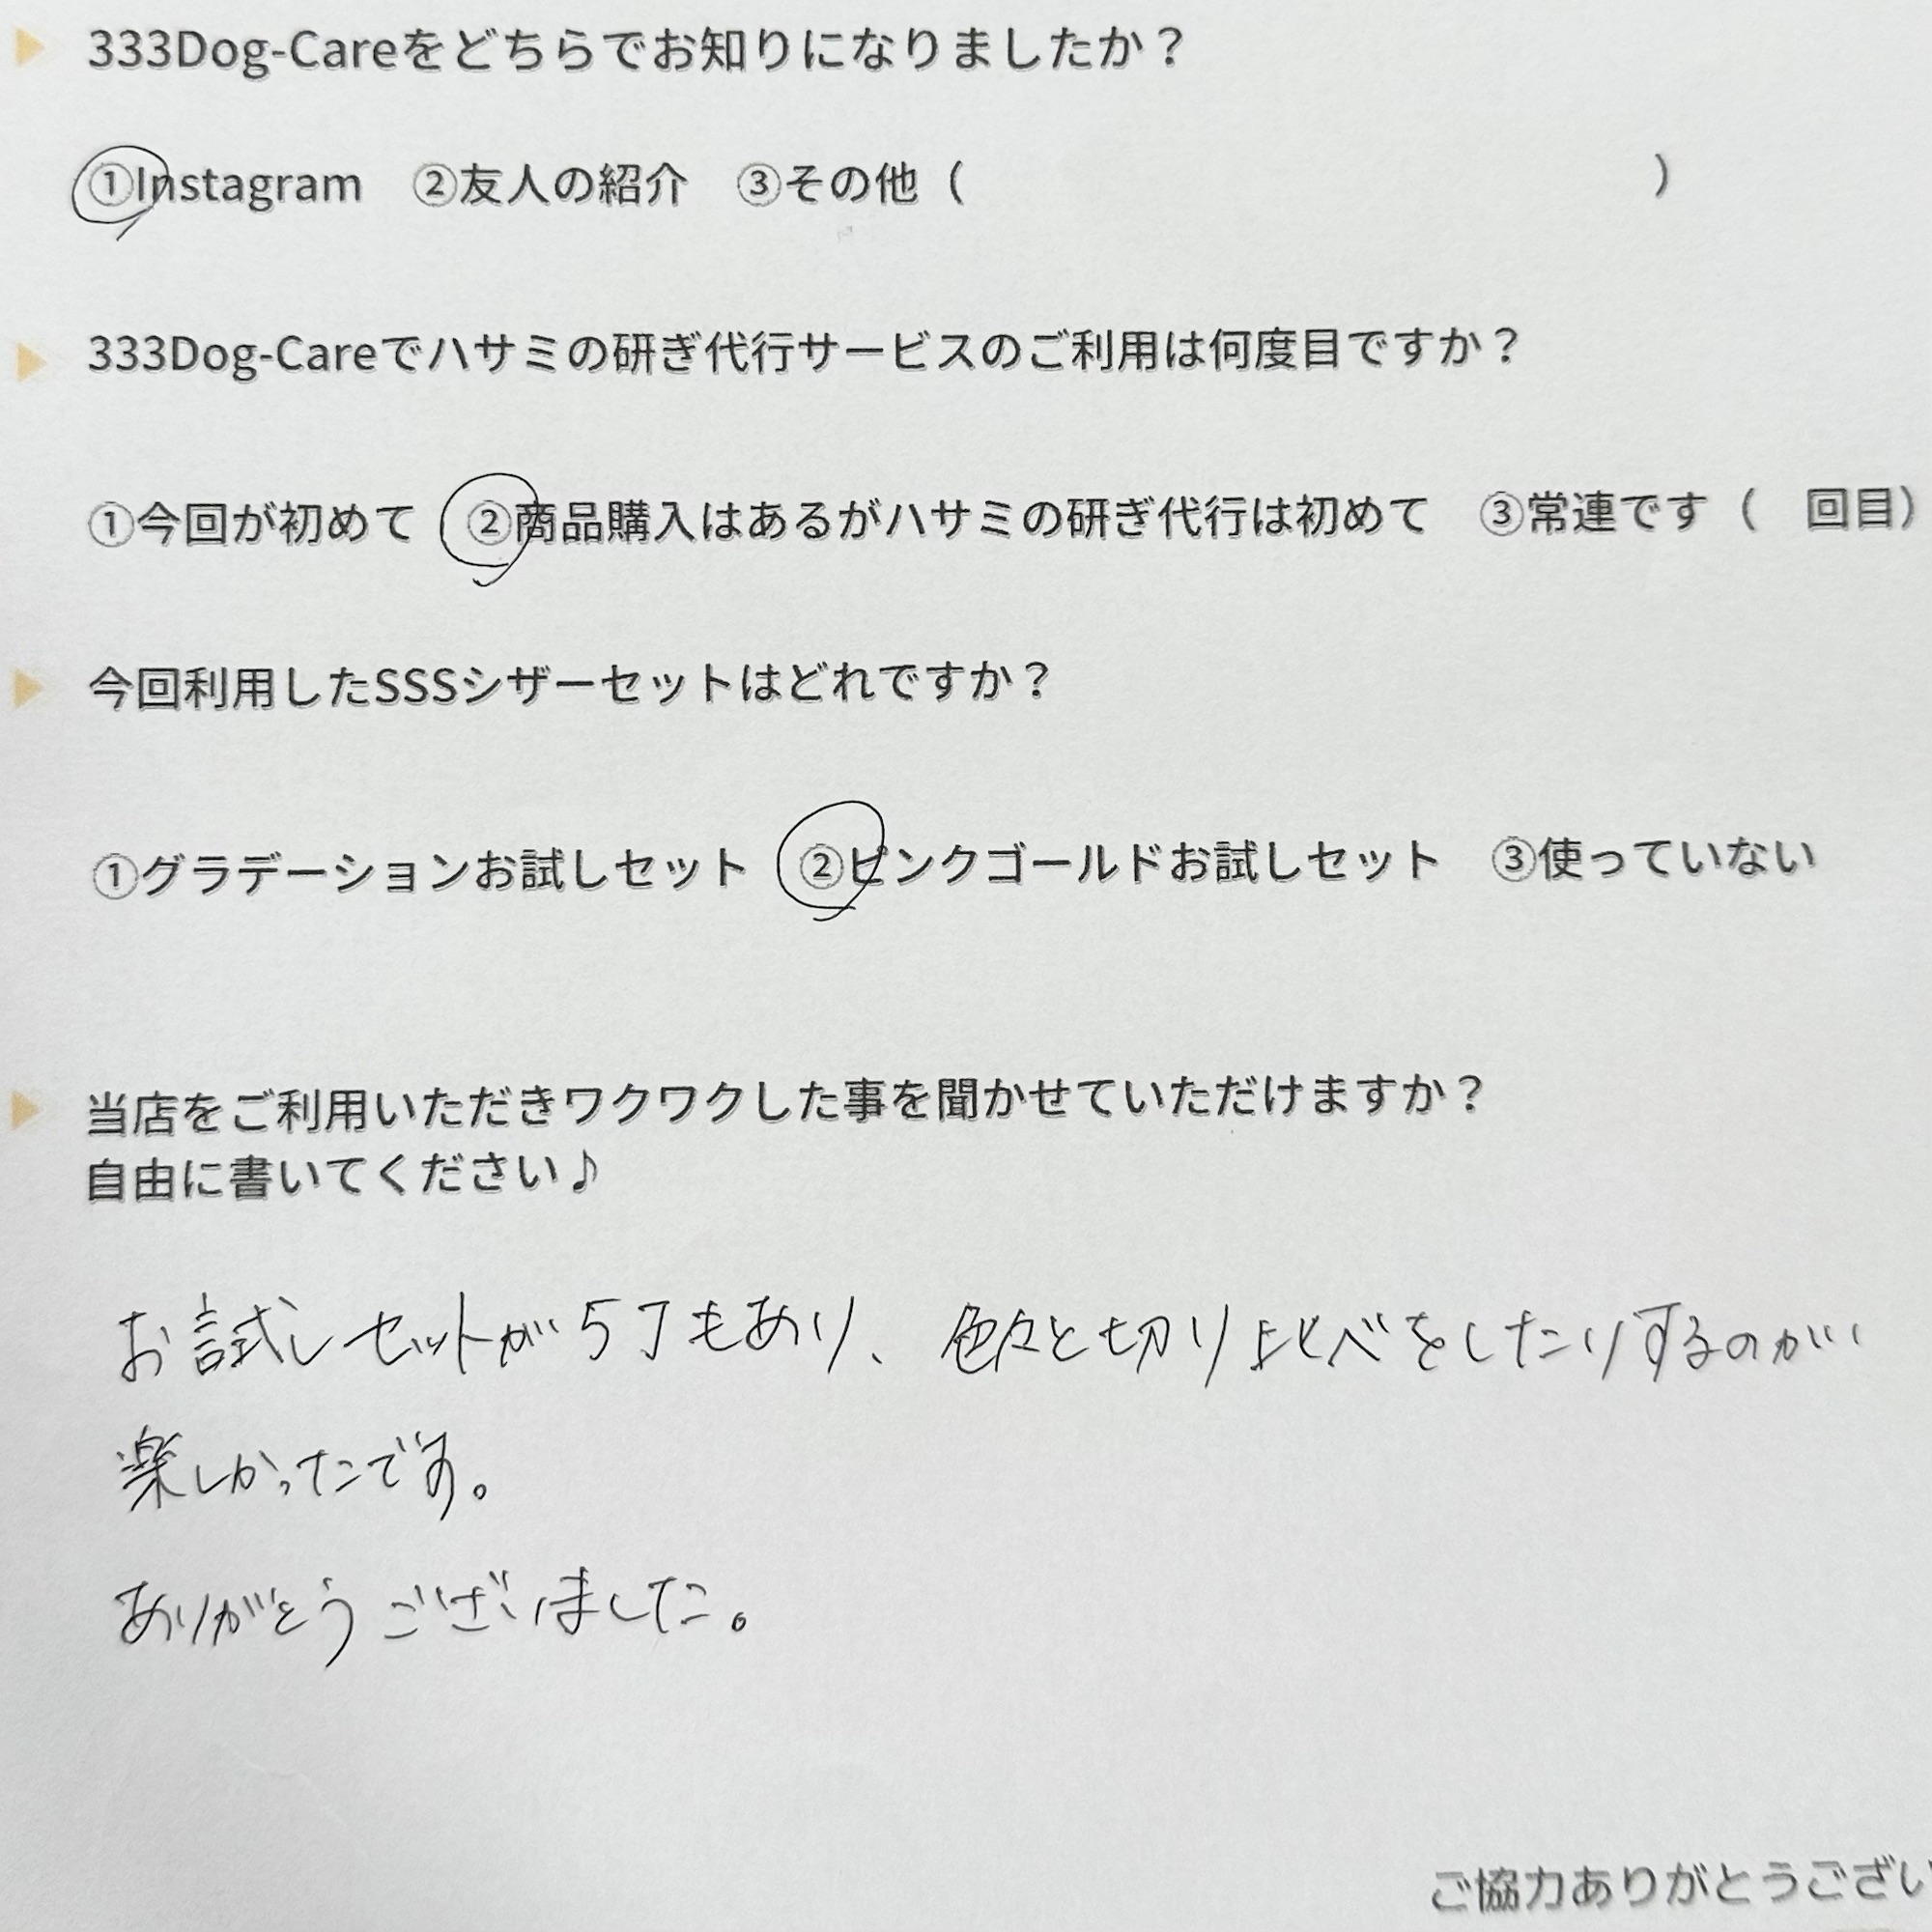 333Dog-Careをどちらでお知りになりましたか？
①Instagram　②友人の紹介　③その他（　　　　　）
333Dog-Careでハサミの研ぎ代行サービスのご利用は何度目ですか？
①今回が初めて　②商品購入はあるがハサミの研ぎ代行は初めて　③常連です（　回目）
今回利用したSSSシザーセットはどれですか？
①グラデーションお試しセット　②ピンクゴールドお試しセット　③使っていない
当店をご利用いただきワクワクした事を聞かせていただけますか？
自由に書いてください♪
お試しセットが5丁もあり、色々と切り比べをしたりするのが
楽しかったです。
ありがとうございました。
ご協力ありがとうござい